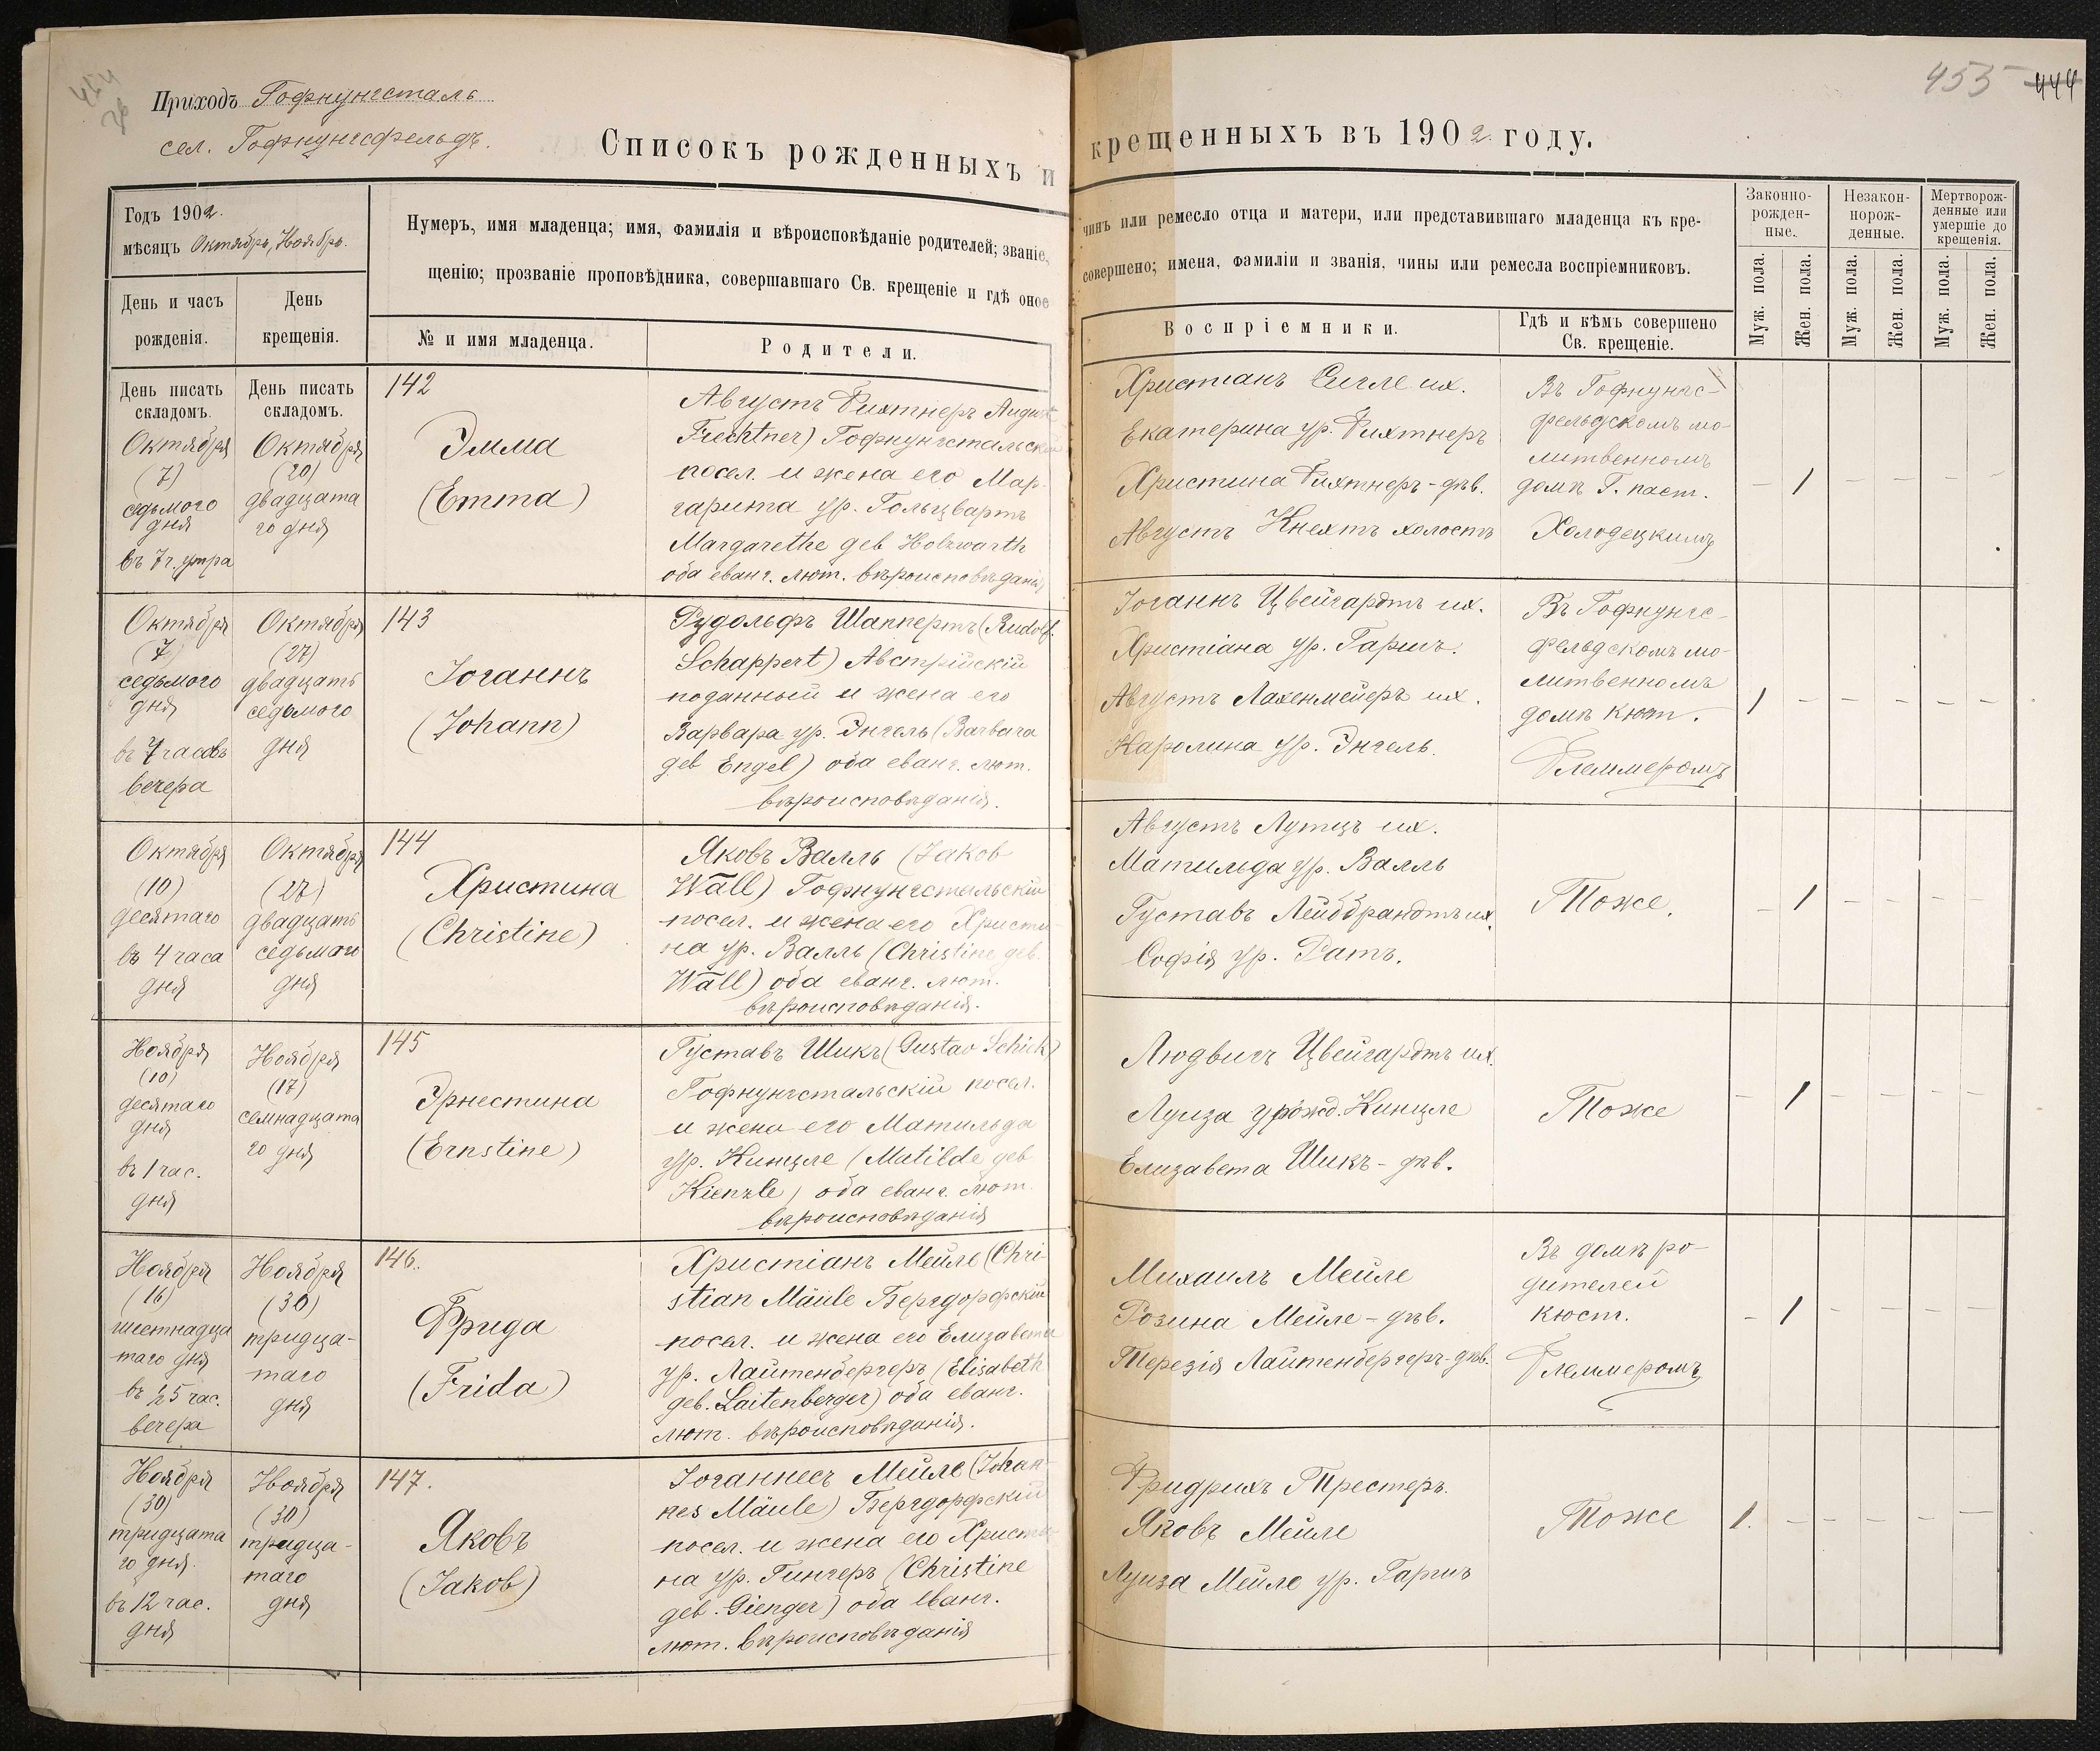 Приходъ Гофнунгсталь
сел. Гофнунгсфельдъ.
455 444
Списокъ рожденныхъ и крещенныхъ въ 1902 году.
Годъ 1902.
мѣсяцъ Октябрь, Ноябрь.
Нумеръ, имя младенца; имя, фамилія и вѣроисповѣданіе родителей; званіе, чинъ или ремесло отца и матери, или представившаго младенца къ кре-
щенію; прозваніе проповѣдника, совершавшаго Св. крещеніе и гдѣ оное совершено; имена, фамиліи и званія, чины или ремесла воспріемниковъ.
Законно-
рожден-
ные.
Незакон-
норож-
денные.
Мертворож-
денные или
умершіе до
крещенія.
День и часъ
рожденія.
День
крещенія.
№ и имя младенца.
Родители.
Воспріемники.
Гдѣ и кѣмъ совершено
Св. крещеніе.
Муж. пола.
Жен. пола.
Муж. пола.
Жен. пола.
Муж. пола.
Жен. пола.
День писать
складомъ.
Октября
(7)
седьмого
дня
въ 7 ч. утра
День писать
складомъ.
Октября
(20)
двадцата
го дня
142
Эмма
(Emma)
Августъ Фихтнеръ August
Fiechtner) Гофнунгстальскій
посел. и жена его Мар-
гарита ур. Гольцвартъ
Margarethe geb Holzwarth
оба еванг. лют. вѣроисповѣданія
Христианъ Сигле их.
Екатерина ур. Фихтнеръ
Христина Фихтнеръ - дѣв.
Августъ Кнехтъ холостъ
Въ Гофнунгс-
фельдскомъ мо-
литвенномъ
домѣ Г. паст.
Холодецкимъ
— 1 — — — —
Октября
(7)
седьмого
дня
въ 7 часовъ
вечера
Октября
(27)
двадцать
седьмого
дня
143
Іоганнъ
(Johann)
Рудольфъ Шаппертъ (Rudolf.
Schappert) Австрійскій
поданный и жена его
Варвара ур. Энгель (Barbara
geb Engel) оба еванг. лют.
вѣроисповѣданія.
Іоганнъ Цвейгардтъ их.
Христіана ур. Гаришъ.
Августъ Лахенмейеръ их.
Каролина ур. Энгель.
Въ Гофнунгс-
фельдскомъ мо-
литвенномъ
домѣ кюст.
Флеммеромъ
1 — — — — —
Октября
(10)
десятаго
въ 4 часа
дня
Октября
(27)
двадцать
седьмого
дня
144
Христина
(Christine)
Яковъ Валль (Jakob
Wall) Гофнунгстальскій
посел. и жена его Христи-
на ур. Валль (Christine geb.
Wall) оба еванг. лют.
вѣроисповѣданія.
Августъ Лутцъ их.
Матильда ур. Валль
Густавъ Лейббрандтъ их.
Софія ур. Ратъ.
Тоже.
— 1 — — — —
Ноября
(10)
десятаго
дня
въ 1 час.
дня
Ноября
(17)
семнадцата
го дня
145
Эрнестина
(Ernstine)
Густавъ Шикъ (Gustav Schick)
Гофнунгстальскій посел.
и жена его Матильда
ур. Кинцле (Matilde geb
Kienzle) оба еванг. лют.
вѣроисповѣданія
Людвигъ Цвейгардтъ их.
Луиза урожд. Кинцле
Елизавета Шикъ - дѣв.
Тоже
— 1 — — — —
Ноября
(16)
шестнадца
таго дня
въ ½5 час.
вечера
Ноября
(30)
тридца-
таго
дня
146.
Фрида
(Frida)
Христіанъ Мейле (Chri-
stian Mäule Бергдорфскій
посел. и жена его Елизавета
ур. Лайтенбергеръ (Elisabeth
geb. Laitenberger) оба еванг.
лют. вѣроисповѣданія.
Михаилъ Мейле
Розина Мейле - дѣв.
Терезія Лайтенбергеръ - дѣв.
Въ домѣ ро-
дителей
кюст.
Флеммеромъ
— 1 — — — —
Ноября
(30)
тридцата
го дня.
въ 12 час.
дня
Ноября
(30)
тридца-
таго
дня
147.
Яковъ
(Jakob)
Іоганнесъ Мейле (Johan-
nes Mäule) Бергдорфскій
посел. и жена его Христи-
на ур. Гингеръ (Christine
geb. Gienger) оба еванг.
лют. вѣроисповѣданія
Фридрихъ Трестеръ.
Яковъ Мейле
Луиза Мейле ур. Гаришъ
Тоже
1. — — — — —